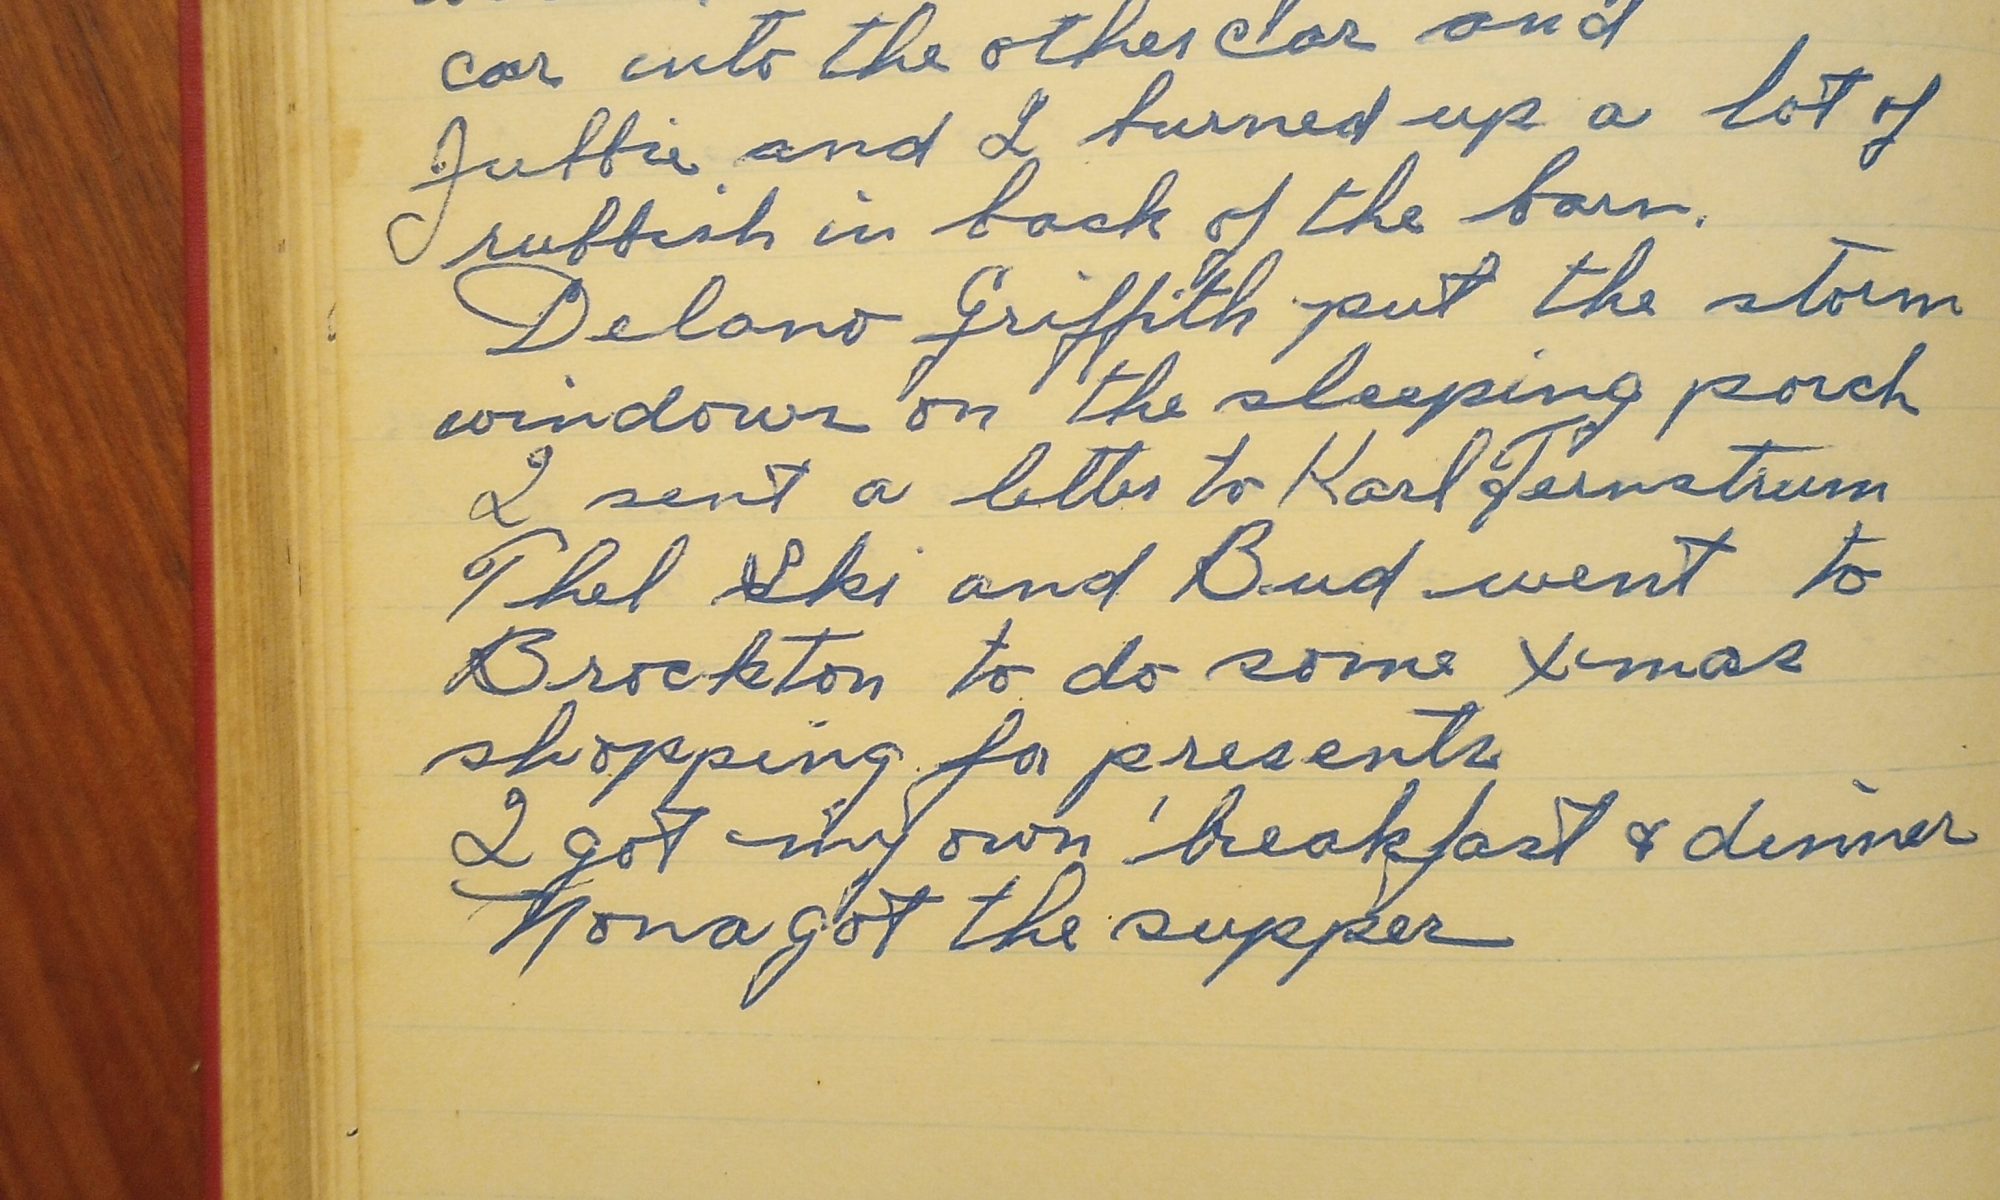 car into the other car and
Jubbie and I burned up a lot of
rubbish in back of the barn.
Delano Griffith put the storm
windows on the sleeping porch
I sent a letter to Karl Ternstrum
Thel Ski and Bud went to
Brockton to do some Xmas
shopping for presents
I got my own breakfast & dinner
Nona got the supper